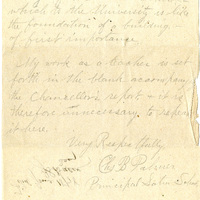 which to the University, is like
the foundation of a building
of first importance.
My work as a teacher is set
forth in the blank accompany
the Chancellor's report & it is
therefore unnecessary to repeat
it here.
Very Respectfully
Principal Latin School